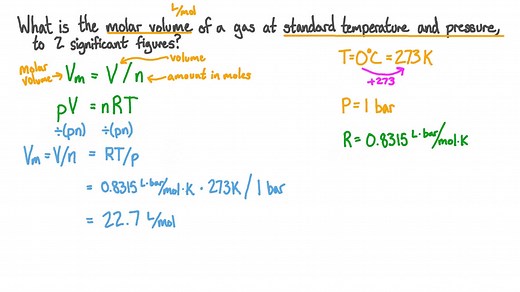 L/mol
What is the molar volume of a gas at standard temperature and pressure,
to 2 significant figures?
molar volume → Vₘ = V/n ← volume ← amount in moles
T=0°C = 273K
+273
pV = nRT
÷(pn) ÷(pn)
P = 1 bar
R = 0.8315 L·bar/mol·K
Vₘ = V/n = RT/p
= 0.8315 L·bar/mol·K · 273K / 1 bar
= 22.7 L/mol